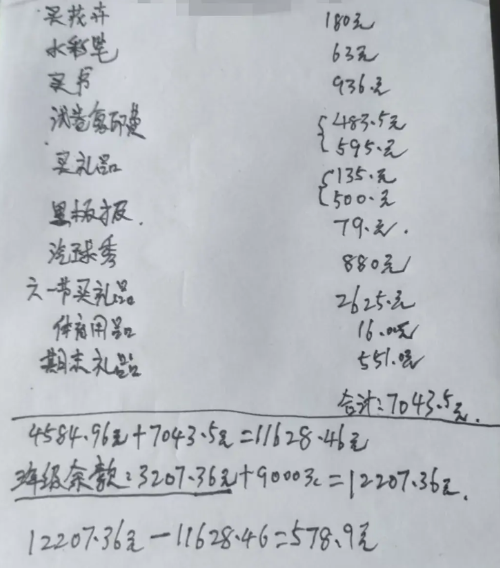 买花卉 180元
水彩笔 63元
买书 936.元
试卷复印费 483.5元
595.元
买礼品 135.元
500.元
黑板报. 79.元.
汽球秀 880元
六一节买礼品 2625.元
体育用品 16.00元
期末礼品 551.0元
合计:7043.5元.
4584.96元+7043.5元=11628.46元
班级余款:3207.36元+9000元=12207.36元.
12207.36元-11628.46=578.9元